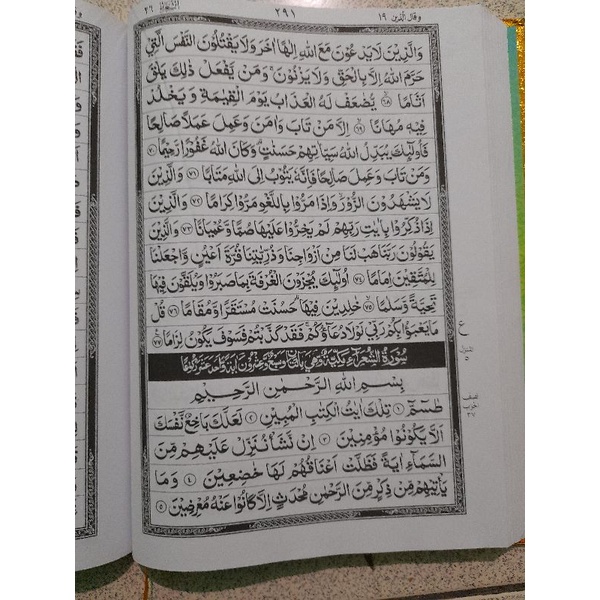 وقال الذين ١٩
٢٩١
الشعراء ٢٦
وَالَّذِيْنَ لَا يَدْعُوْنَ مَعَ اللّٰهِ اِلٰهًا اٰخَرَ وَلَا يَقْتُلُوْنَ النَّفْسَ الَّتِيْ
حَرَّمَ اللّٰهُ اِلَّا بِالْحَقِّ وَلَا يَزْنُوْنَ ۚ وَمَنْ يَّفْعَلْ ذٰلِكَ يَلْقَ
اَثَامًا ﴿٦٨﴾ يُّضٰعَفْ لَهُ الْعَذَابُ يَوْمَ الْقِيٰمَةِ وَيَخْلُدْ
فِيْهٖ مُهَانًا ﴿٦٩﴾ اِلَّا مَنْ تَابَ وَاٰمَنَ وَعَمِلَ عَمَلًا صَالِحًا
فَاُولٰٓئِكَ يُبَدِّلُ اللّٰهُ سَيِّاٰتِهِمْ حَسَنٰتٍ ۗ وَكَانَ اللّٰهُ غَفُوْرًا رَّحِيْمًا ﴿٧٠﴾
وَمَنْ تَابَ وَعَمِلَ صَالِحًا فَاِنَّهٗ يَتُوْبُ اِلَى اللّٰهِ مَتَابًا ﴿٧١﴾ وَالَّذِيْنَ
لَا يَشْهَدُوْنَ الزُّوْرَ ۙ وَاِذَا مَرُّوْا بِاللَّغْوِ مَرُّوْا كِرَامًا ﴿٧٢﴾ وَالَّذِيْنَ
اِذَا ذُكِّرُوْا بِاٰيٰتِ رَبِّهِمْ لَمْ يَخِرُّوْا عَلَيْهَا صُمًّا وَّعُمْيَانًا ﴿٧٣﴾ وَالَّذِيْنَ
يَقُوْلُوْنَ رَبَّنَا هَبْ لَنَا مِنْ اَزْوَاجِنَا وَذُرِّيّٰتِنَا قُرَّةَ اَعْيُنٍ وَّاجْعَلْنَا
لِلْمُتَّقِيْنَ اِمَامًا ﴿٧٤﴾ اُولٰٓئِكَ يُجْزَوْنَ الْغُرْفَةَ بِمَا صَبَرُوْا وَيُلَقَّوْنَ فِيْهَا
تَحِيَّةً وَّسَلٰمًا ﴿٧٥﴾ خٰلِدِيْنَ فِيْهَا ۗ حَسُنَتْ مُسْتَقَرًّا وَّمُقَامًا ﴿٧٦﴾ قُلْ
مَا يَعْبَؤُا بِكُمْ رَبِّيْ لَوْلَا دُعَاؤُكُمْ ۚ فَقَدْ كَذَّبْتُمْ فَسَوْفَ يَكُوْنُ لِزَامًا ﴿٧٧﴾
ع
سُوْرَةُ الشُّعَرَاءِ مَكِّيَّةٌ وَّهِيَ مِائَتَانِ وَسَبْعٌ وَّعِشْرُوْنَ اٰيَةً وَّاَحَدَ عَشَرَ رُكُوْعًا
بِسْمِ اللّٰهِ الرَّحْمٰنِ الرَّحِيْمِ
نصف
حزب
٣٧
طٰسٓمّٓ ﴿١﴾ تِلْكَ اٰيٰتُ الْكِتٰبِ الْمُبِيْنِ ﴿٢﴾ لَعَلَّكَ بَاخِعٌ نَّفْسَكَ
اَلَّا يَكُوْنُوْا مُؤْمِنِيْنَ ﴿٣﴾ اِنْ نَّشَأْ نُنَزِّلْ عَلَيْهِمْ مِّنَ
السَّمَآءِ اٰيَةً فَظَلَّتْ اَعْنَاقُهُمْ لَهَا خٰضِعِيْنَ ﴿٤﴾ وَمَا
يَأْتِيْهِمْ مِّنْ ذِكْرٍ مِّنَ الرَّحْمٰنِ مُحْدَثٍ اِلَّا كَانُوْا عَنْهُ مُعْرِضِيْنَ ﴿٥﴾